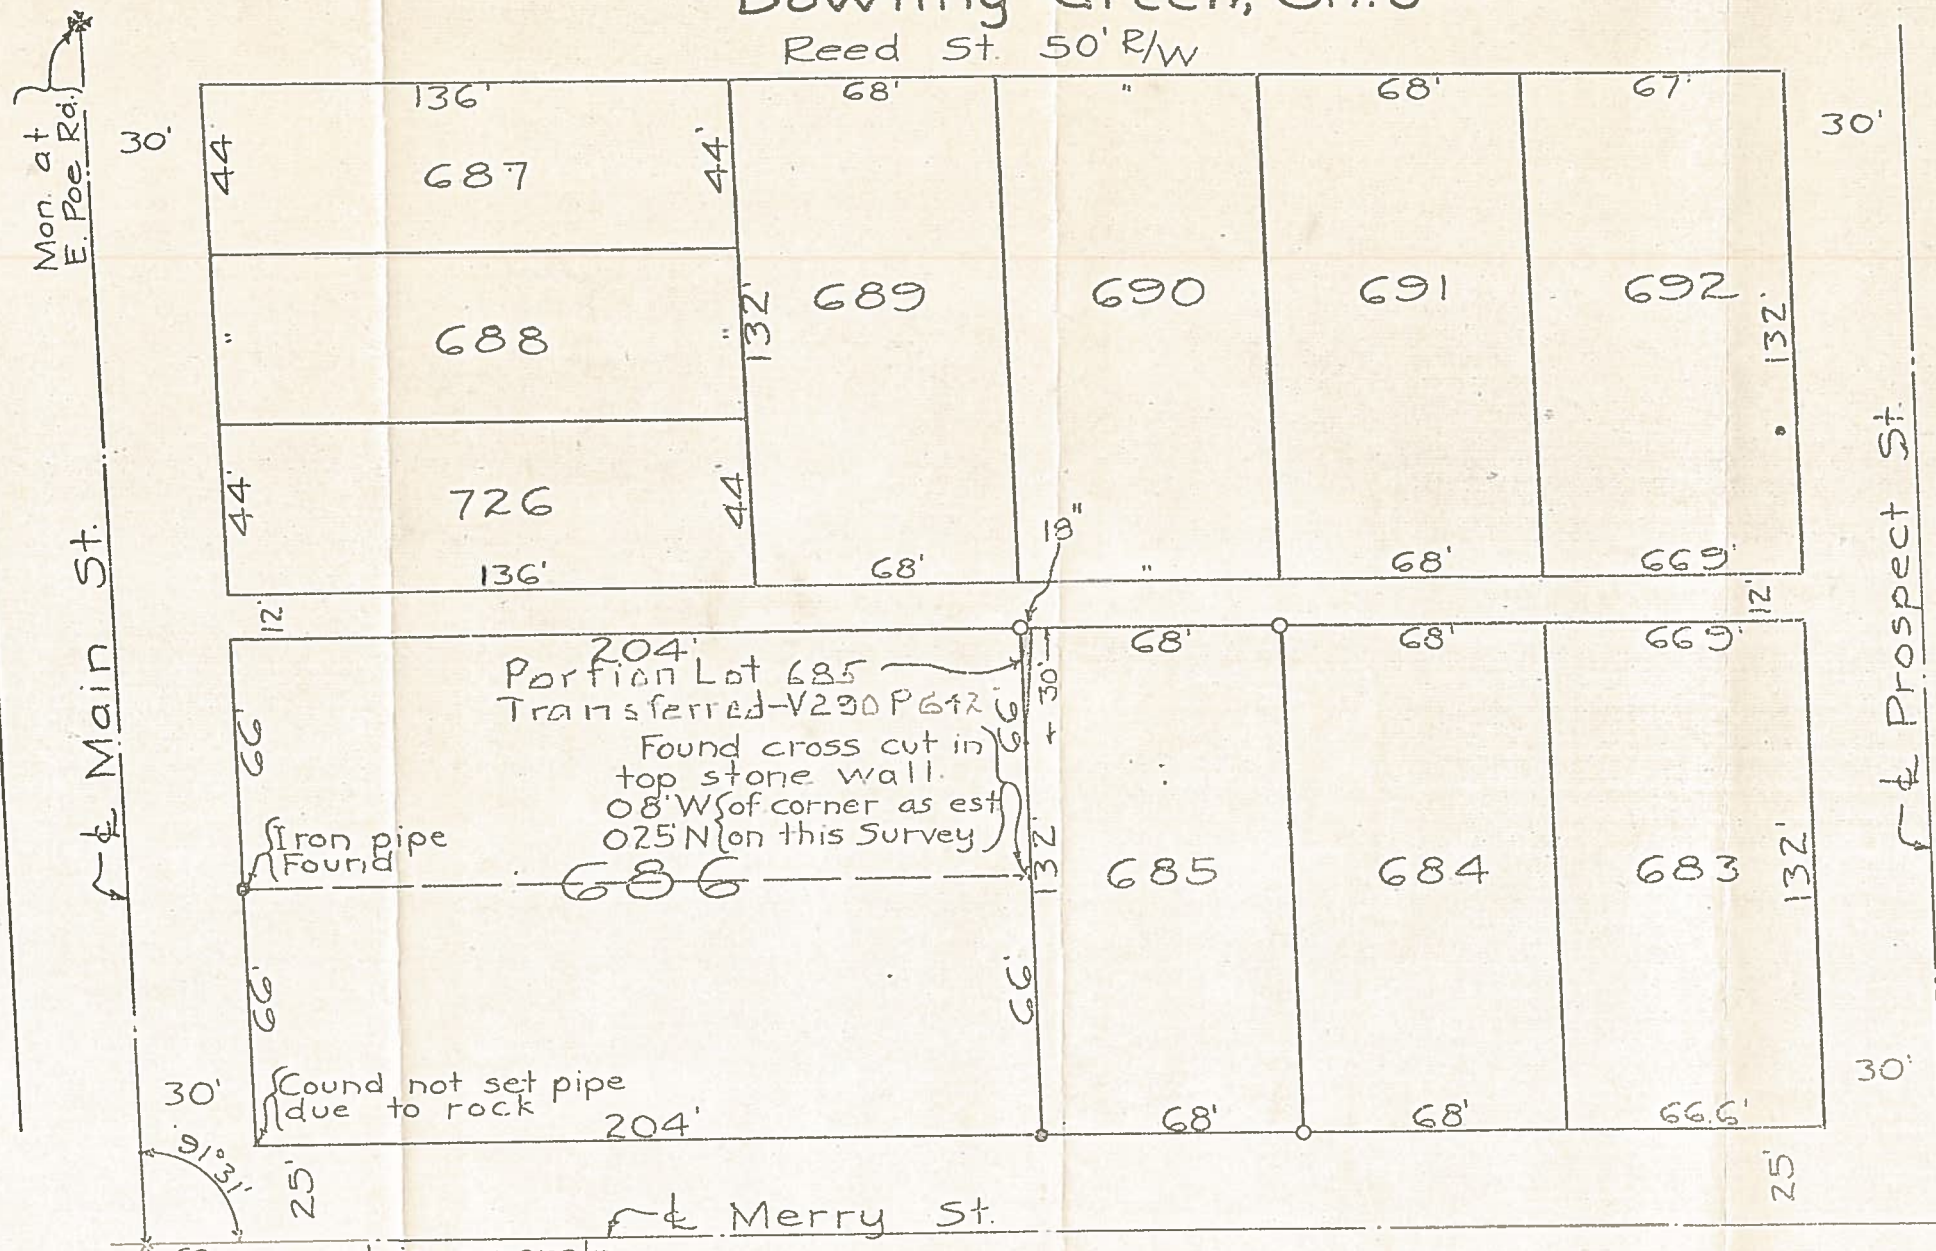 Bowling Green, Ohio
Reed St. 50' R/W
Mon. at
E. Poe Rd.
30'
136'
68'
"
68'
67'
30'
44'
687
44'
688
"
"
132'
689
690
691
692
132'
44'
726
44'
136'
68'
"
68'
669'
18"
12'
12'
℄ Main St.
℄ Prospect St.
204'
68'
68'
669'
Portion Lot 685
Transferred-V290 P642
66'
30'
66'
Found cross cut in
top stone wall.
08'W of corner as est
025'N on this Survey
Iron pipe
Found
686
132'
685
684
683
132'
66'
66'
30'
Cound not set pipe
due to rock
204'
68'
68'
66.6'
30'
91°31'
25'
25'
℄ Merry St.